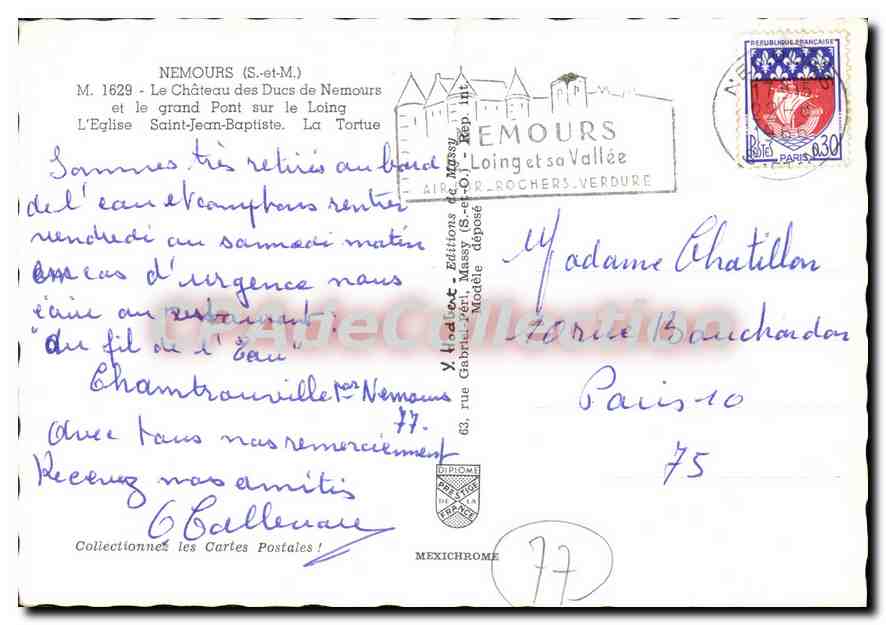 NEMOURS (S.-et-M.)
M. 1629 - Le Château des Ducs de Nemours
et le grand Pont sur le Loing
L'Eglise Saint-Jean-Baptiste. La Tortue
Sommes très retirés au bord
de l'eau et comptons rentrer
vendredi ou samedi matin
en cas d'urgence nous
écrire au restaurant :
"au fil de l'Eau"
par Nemours
77.
Avec tous nos remerciement
Recevez nos amitiés
Collectionnez les Cartes Postales !
Y. Hodbert - Editions de Massy
63, rue Gabriel-Péri, Massy (S.-et-O.) - Rep. int.
Modèle déposé
DIPLOME
PRESTIGE
DE LA
FRANCE
MEXICHROME
NEMOURS
Loing et sa Vallée
AIR PUR_ROCHERS_VERDURE
REPUBLIQUE FRANÇAISE
POSTES
0,30
PARIS
Madame Chatillon
10 rue Bouchardon
Paris-10
75
77
CPAdeCollection